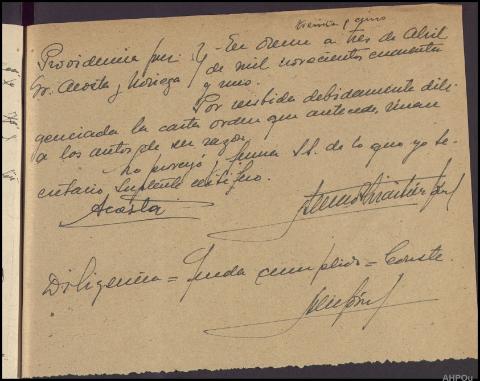 treinta y cinco
Providencia Juez } - En Orense a tres de Abril
Sr. Acosta y Noriega } de mil novecientos cincuenta
y uno.
Por recibida debidamente dili
genciada la carta orden que antecede, únan
a los autos de su razón.
Lo proveyó y firma S.S. de lo que yo Se
cretario Suplente certifico.
Acosta
Diligencia = Queda cumplido = Conste.
AHPOu